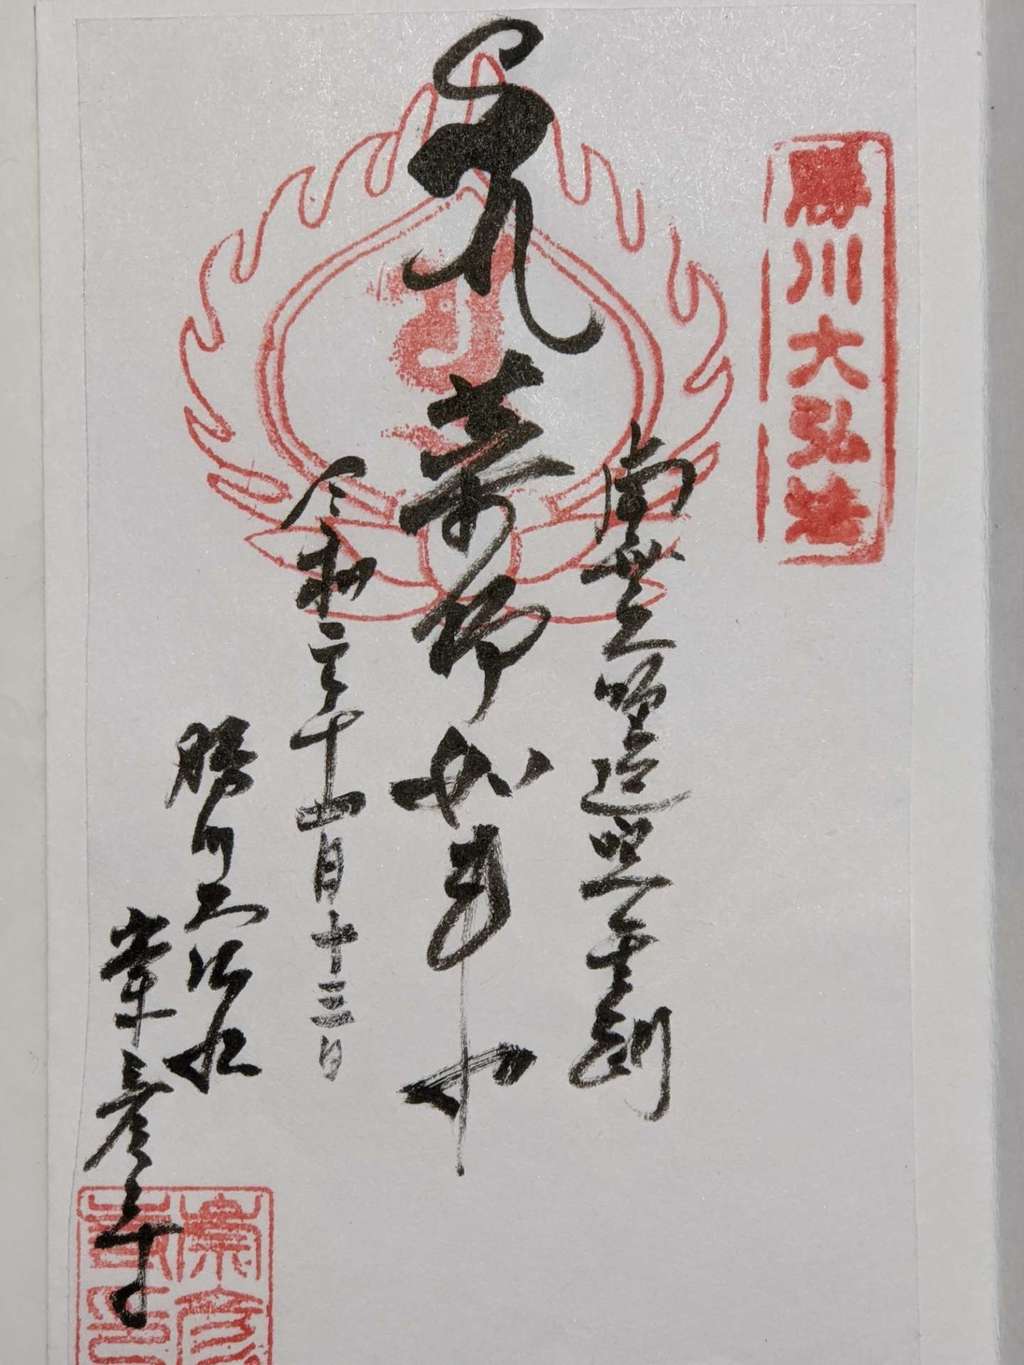 勝川大弘法
南無大師遍照金剛
薬師如来
令和二年十一月十三日
勝川大弘法
崇彦寺
崇彦寺印